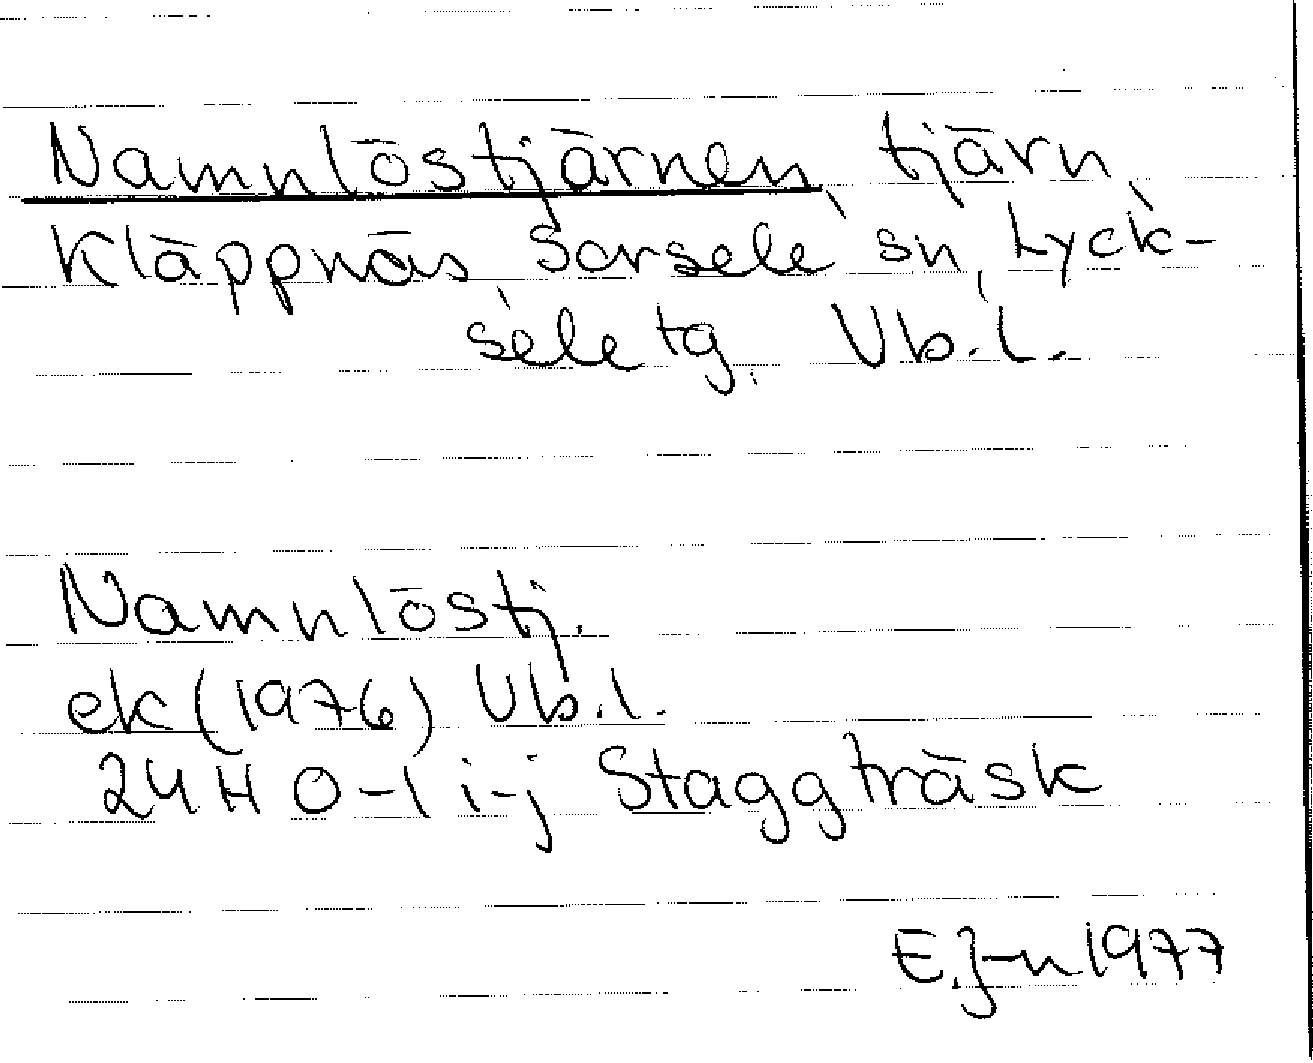 Namnlöstjärnen, tjärn,
Kläppnäs, Sorsele sn, Lyck-
sele tg. Vb.l.
Namnlöstj.
ek (1976) Vb.l.
24H 0-1 i-j Staggträsk
E.J-n 1977